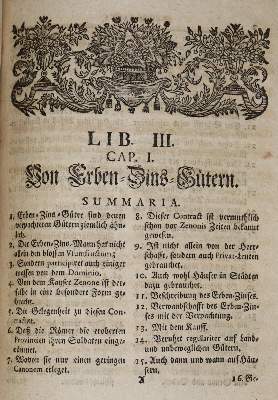 LIB. III.
CAP. I.
Von Erben-Zins-Gütern.
SUMMARIA.
1. Erben-Zins-Güte sind denen
verpachteten Gütern ziemlich ähn-
lich.
2. Die Erben-Zins-Mann hat nicht
allein den blossen
3. Sondern participiret auch einiger
massen von dem Dominio.
4. Von dem Kayser Zenone ist der-
selbe in eine besondere Form ge-
bracht.
5. Die Gelegenheit zu diesem Con-
tract.
6. Daß die Römer die eroberten
Provincien ihren Soldaten einge-
räumet.
7. Wovon sie nur einen geringen
Canonem erleget.
8. Dieser Contract ist vermuthlich
schon vor Zenonis Zeiten bekannt
gewesen.
9. Ist nicht allein von der Herr-
schafft, sondern auch Privat-Leuten
gebrauchet.
10. Auch wohl Häuser in Städten
dazu gebrauchet.
11. Beschreibung des Erben-Zinses.
12. Verwandschafft des Erben-Zin-
ses mit der Verpachtung.
13. Mit dem Kauff.
14. Beruhet regulariter auf Land-
und unbeweglichen Gütern.
15. Auch dann und wann auf Häu-
sern.
A
16. Ge-